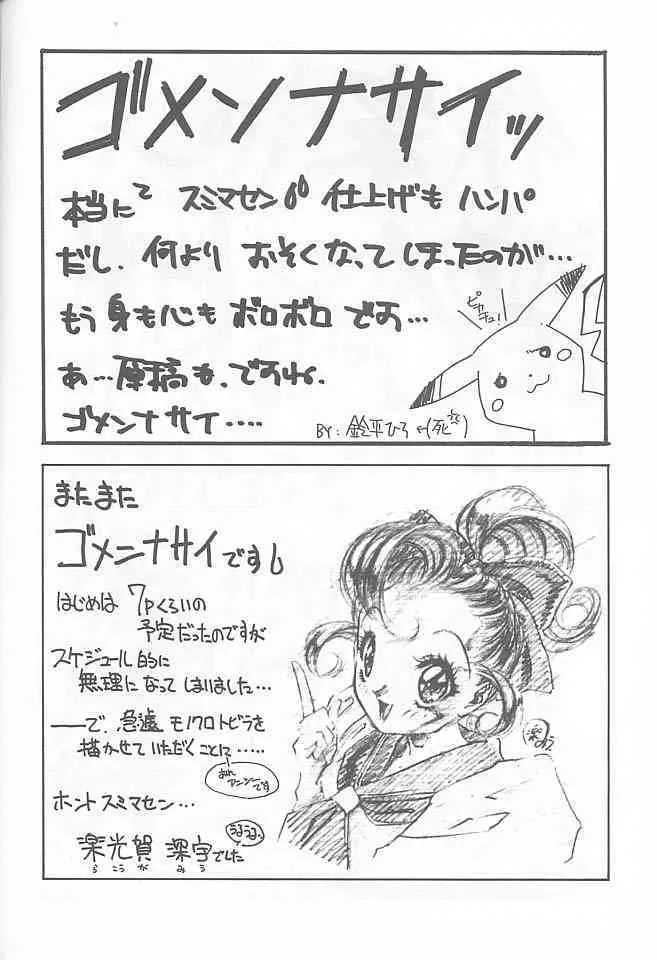 ゴメンナサイッ
本当にて スミマセン 仕上げも ハンパ
だし、何より おそくなってしまったのが…
もう 身も心も ボロボロ です…
ピカチュ!
あ…原稿も、ですね。
ゴメンナサイ……
BY: 鈴平ひろ ←(死)
またまた
ゴメンナサイです
はじめは 7Pくらいの
予定だったのですが
スケジュール的に
無理になってしまいました…
――で、急遽 モノクロトビラを
描かせていただくことに……
アニジーです
ホント スミマセン…
うるうる
楽光賀 深宇でした
らこうが みう
楽みう